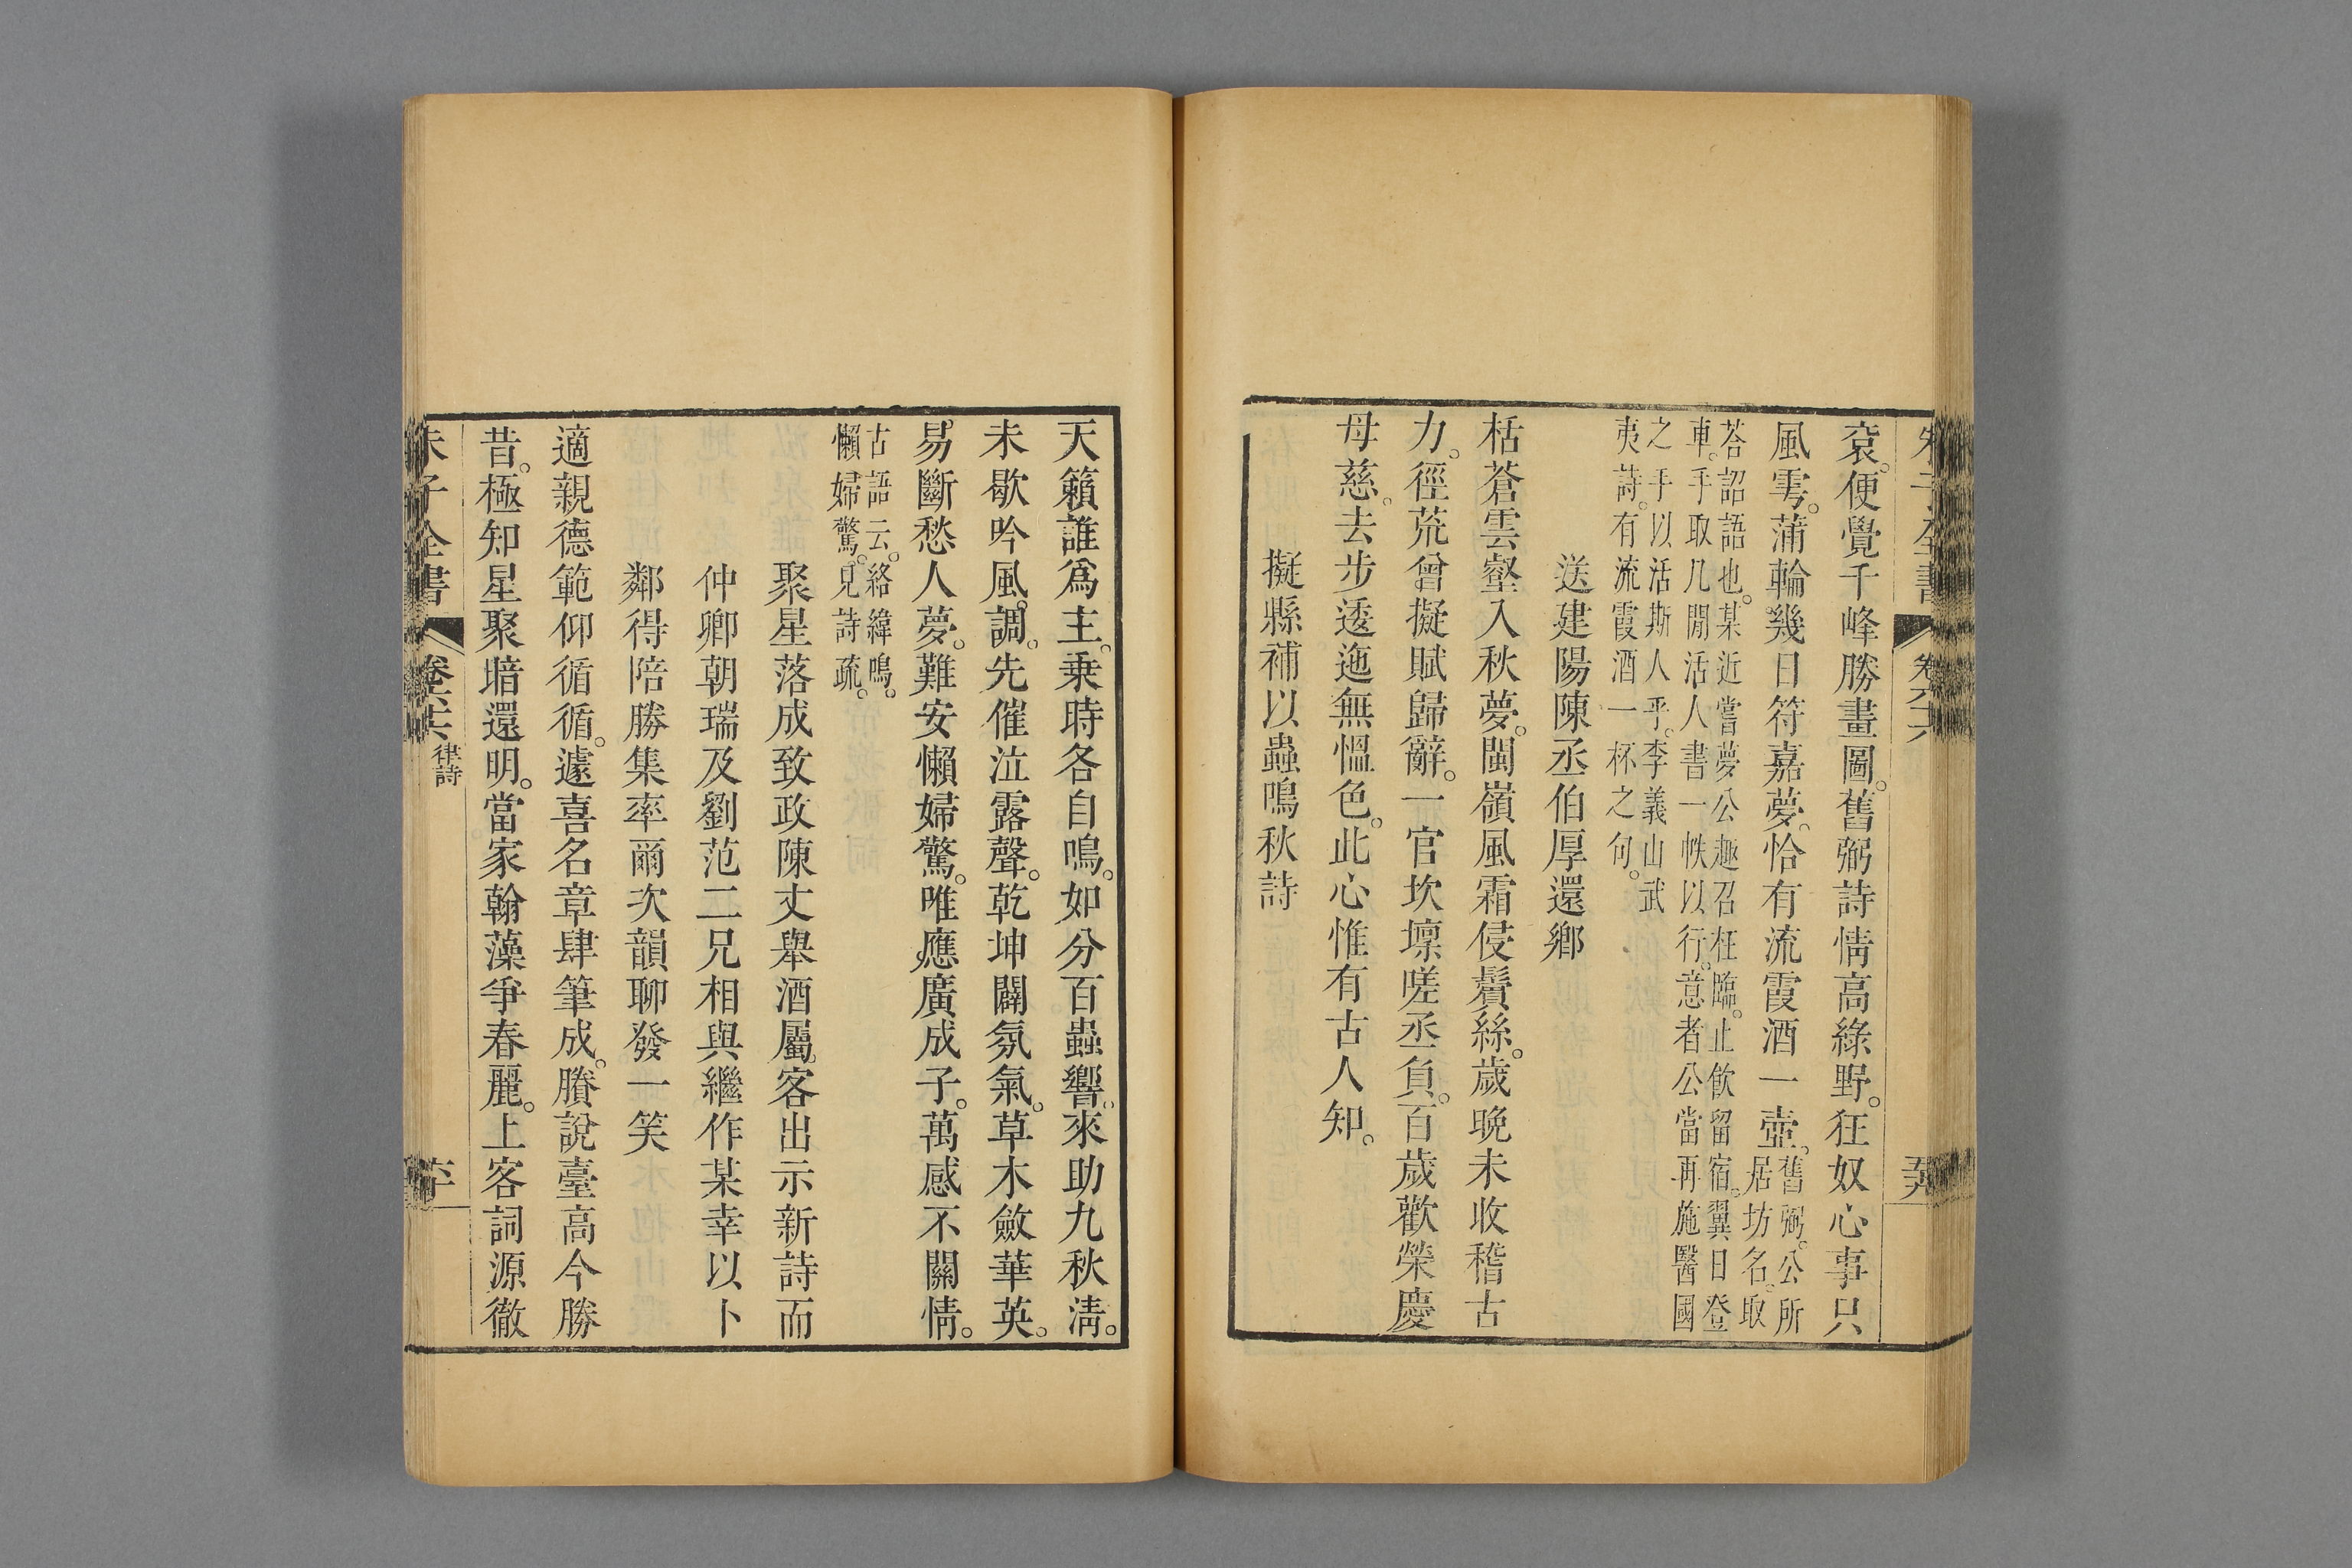 朱子全書 卷六十六 五十九
袞。便覺千峰勝畫圖。舊弼詩情高綠野。狂奴心事只
風雩。蒲輪幾日符嘉夢。恰有流霞酒一壺。舊弼。公所居坊名。取
荅詔語也。某近嘗夢公趣召枉臨。止飲留宿。翼日登
車。手取几閒活人書一帙以行。意者公當再施醫國
之手以活斯人乎。李義山武
夷詩。有流霞酒一杯之句。
送建陽陳丞伯厚還鄉
栝蒼雲壑入秋夢。閩嶺風霜侵鬢絲。歲晚未收稽古
力。徑荒曾擬賦歸辭。一官坎壈嗟丞負。百歲歡榮慶
母慈。去步逶迤無慍色。此心惟有古人知。
擬縣補以蟲鳴秋詩
天籟誰爲主。乗時各自鳴。如分百蟲響。來助九秋淸。
未歇吟風調。先催泣露聲。乾坤闢氛氣。草木斂華英。
易斷愁人夢。難安懶婦驚。唯應廣成子。萬感不關情。
古語云。絡緯鳴。
懶婦驚。見詩疏。
聚星落成致政陳丈舉酒屬客出示新詩而
仲卿朝瑞及劉范二兄相與繼作某幸以卜
鄰得陪勝集率爾次韻聊發一笑
適親德範仰循循。遽喜名章肆筆成。賸說臺高今勝
昔。極知星聚暗還明。當家翰藻爭春麗。上客詞源徹
朱子全書 卷六十六 律詩 六十